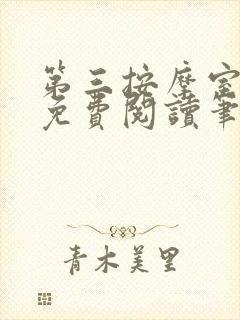 第三按摩室
免費閱讀筆
青木美里